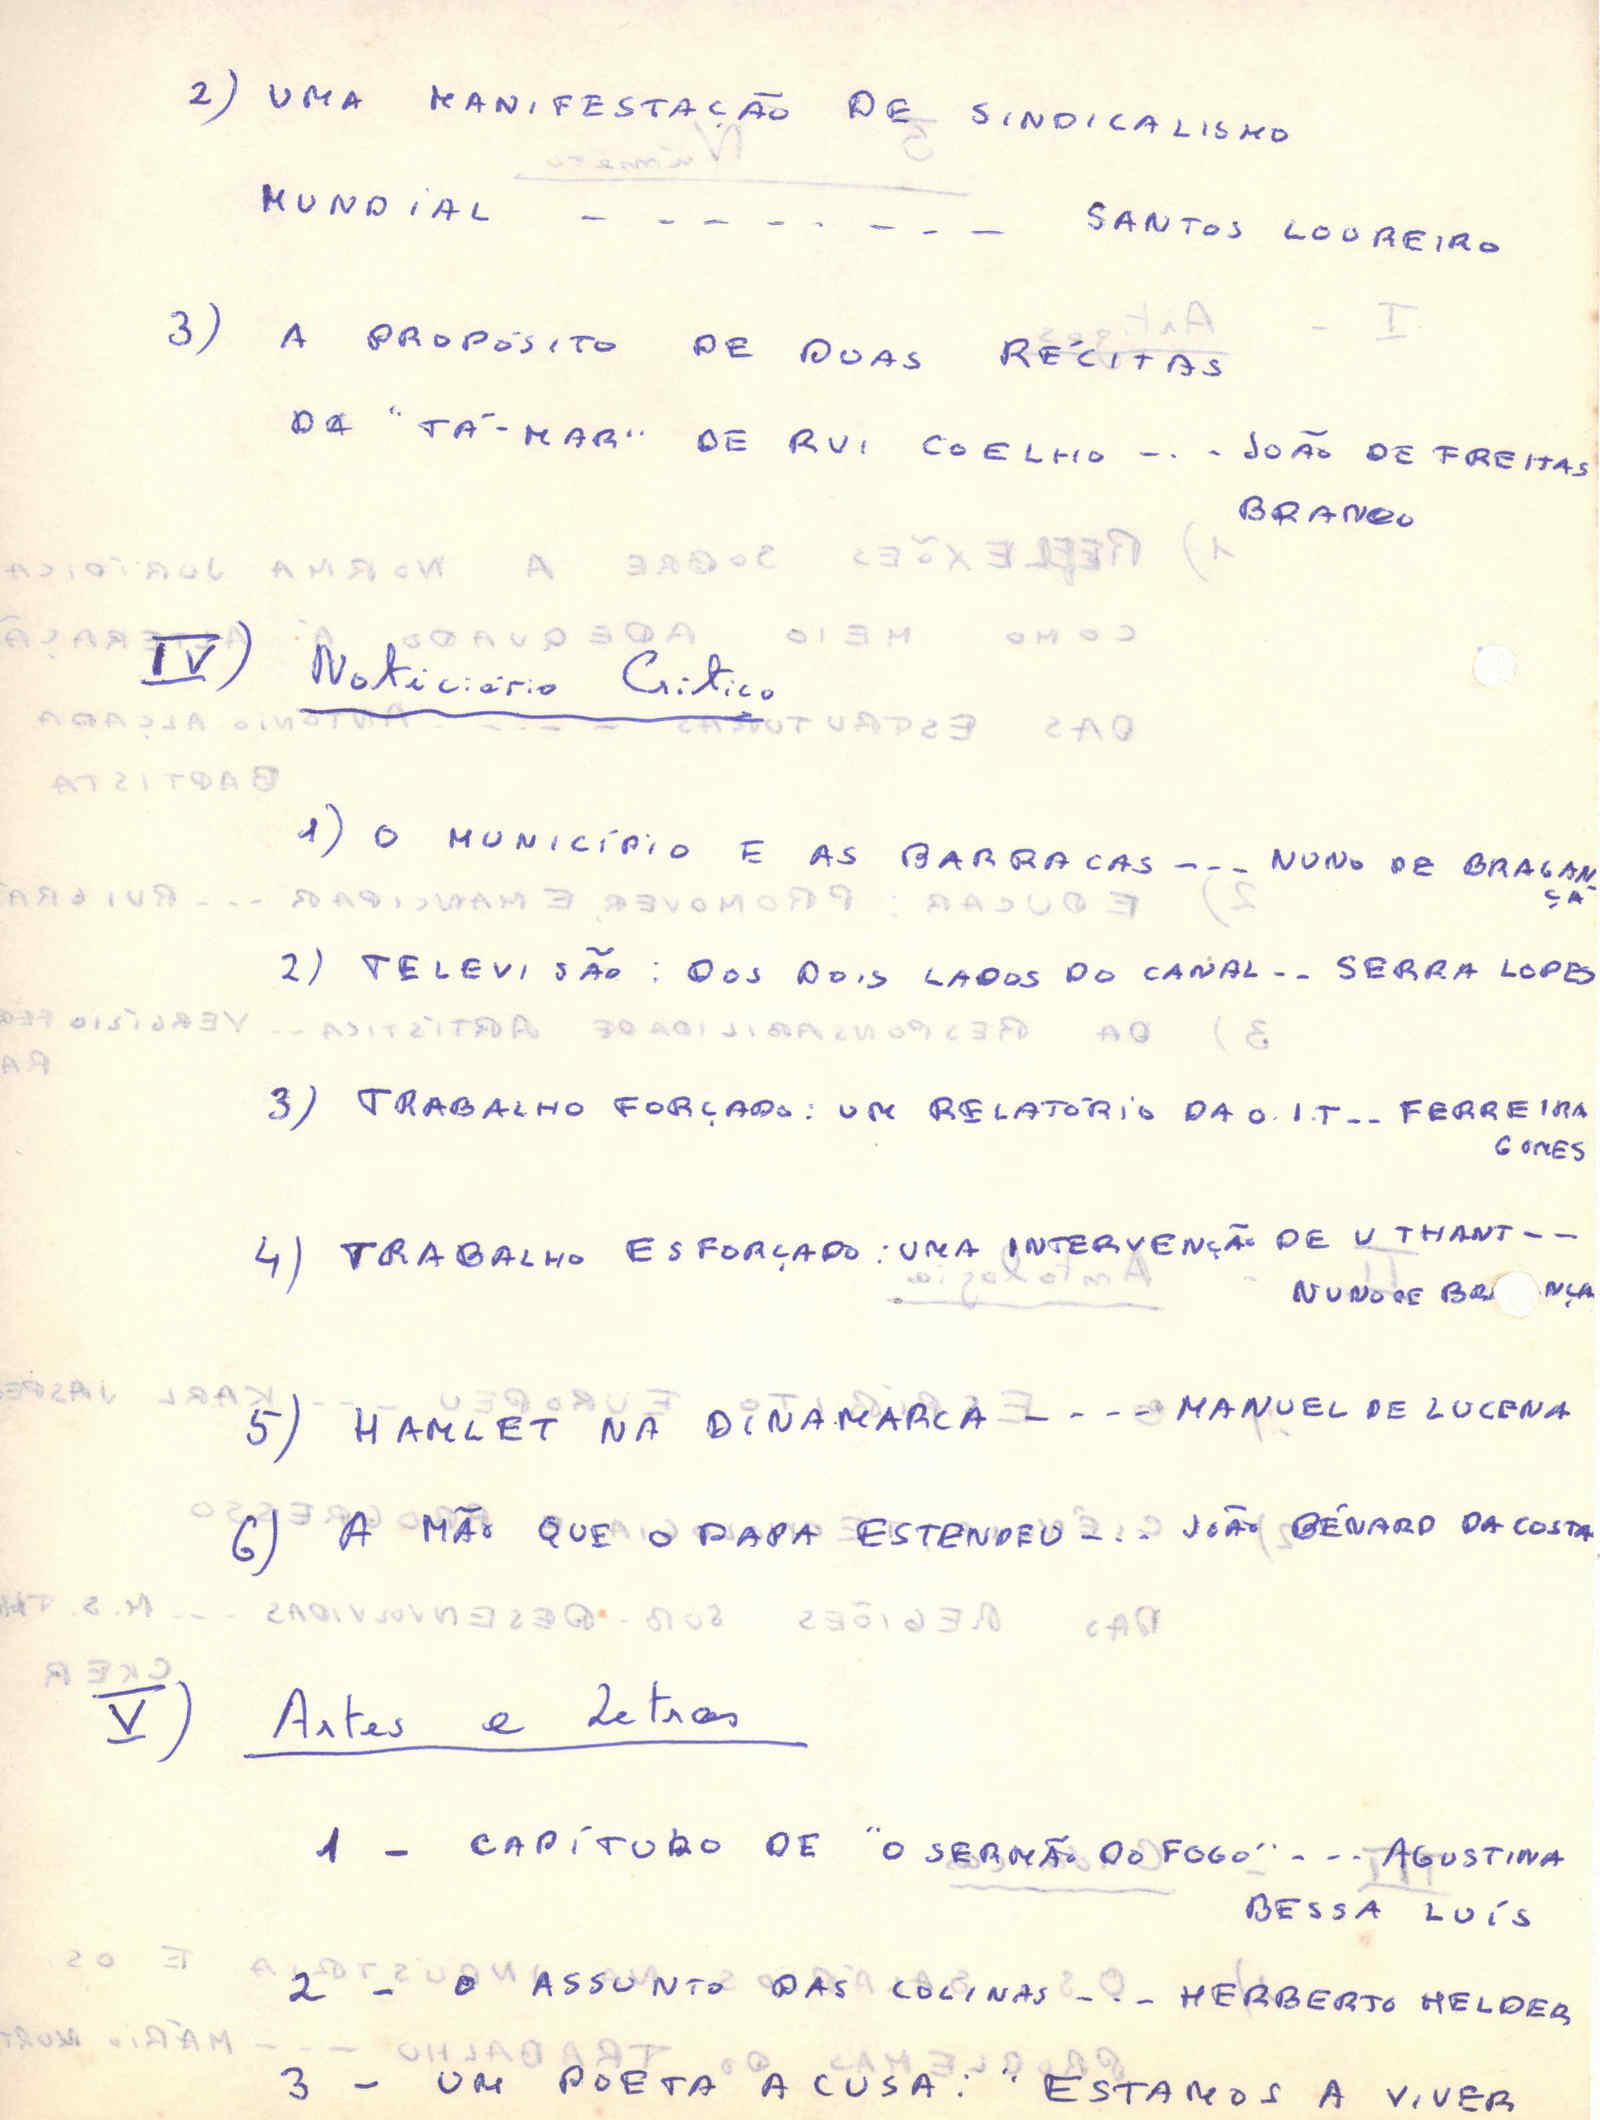 2) UMA MANIFESTAÇÃO DE SINDICALISMO
MUNDIAL - - - - - - - - SANTOS LOUREIRO
3) A PROPÓSITO DE DUAS RÉCITAS
DA "TÁ-MAR" DE RUI COELHO - - - JOÃO DE FREITAS
BRANCO
IV) Noticiário Crítico
1) O MUNICÍPIO E AS BARRACAS --- NUNO DE BRAGAN
ÇA
2) TELEVISÃO: DOS DOIS LADOS DO CANAL -- SERRA LOPES
3) TRABALHO FORÇADO: UM RELATÓRIO DA O.I.T -- FERREIRA
GOMES
4) TRABALHO ESFORÇADO: UMA INTERVENÇÃO DE U THANT --
NUNO DE BRA NÇA
5) HAMLET NA DINAMARCA - - - - MANUEL DE LUCENA
6) A MÃO QUE O PAPA ESTENDEU - - - JOÃO BÉNARD DA COSTA
V) Artes e Letras
1 - CAPÍTULO DE "O SERMÃO DO FOGO" - - - AGUSTINA
BESSA LUÍS
2 - O ASSUNTO DAS COLINAS - - - HERBERTO HELDER
3 - UM POETA ACUSA: "ESTAMOS A VIVER